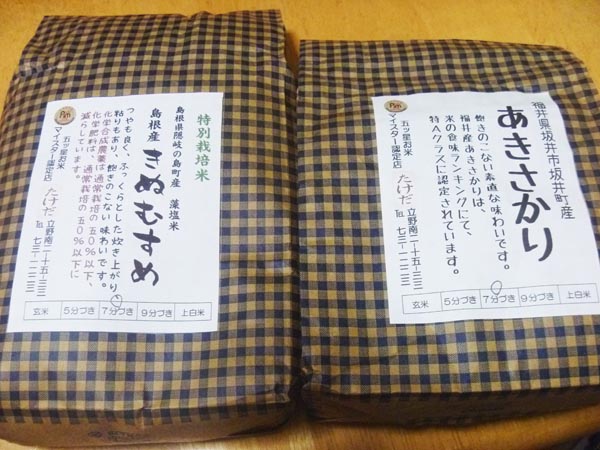 特別栽培米
島根県隠岐の島町産 藻塩米
島根産 きぬむすめ
つやも良く、ふっくらとした炊き上がり
粘りもあり、飽きのこない味わいです。
化学合成農薬は通常栽培の五〇%以下、
化学肥料は、通常栽培の五〇%以下に
減らしています。
五ツ星お米
マイスター認定店
たけだ
立野南二十五ー三二
玄米 5分づき 7分づき 9分づき 上白米
福井県坂井市坂井町産
あきさかり
飽きのこない素直な味わいです。
福井産あきさかりは、
米の食味ランキングにて、
特Aクラスに認定されています。
五ツ星お米
マイスター認定店
たけだ
立野南二十五ー三二
玄米 5分づき 7分づき 9分づき 上白米